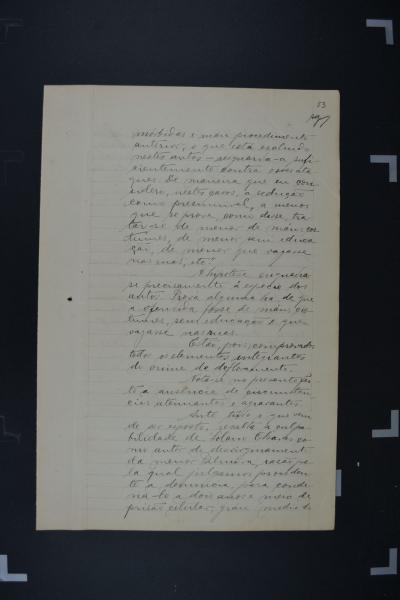 53
morbidas e mau procedimento
anterior, o que está excluido
nestes autos - resguaria-a, suffi
cientemente contra esses ata
ques. De maneira que eu con
sidero, nestes casos, a seducção
como presumivel, a menos
que se prove, como disse, tra
tar-se de menor de maus cos
tumes, de menor sem educa
ção, de menor que vagasse
nas ruas, etc."
A hypothese enquadra
se precisamente á especie dos
autos. Prova alguma ha de que
a offendida fosse de maus cos
tumes, sem educação e que
vagasse nas ruas.
Estão, pois, comprovados
todos os elementos integrantes
do crime de defloramento.
Nota-se no presente
a ausencia de circumstan
cias attenuantes e aggravantes.
Ante todo o que vem
de ser exposto, resulta a culpa
bilidade de co
mo autor de desvirginamento
da menor razão pe
la qual julgamos proceden
te a denuncia, para conde
na-lo a dois annos e meio de
prisão cellular, grau medio do